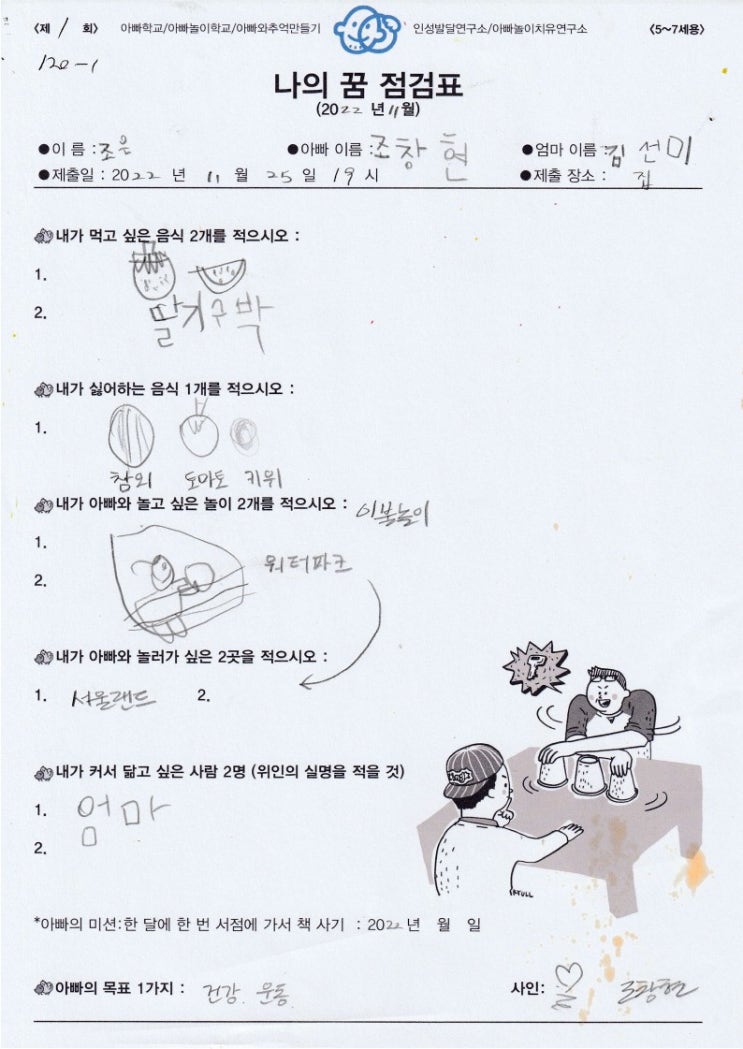 〈제 1 회〉 아빠학교/아빠놀이학교/아빠와추억만들기 인성발달연구소/아빠놀이치유연구소 〈5~7세용〉
120-1
나의 꿈 점검표
(2022 년 11월)
●이 름 : 조은 ●아빠 이름 : 조창현 ●엄마 이름 : 김선미
●제출일 : 2022 년 11 월 25 일 19 시 ●제출 장소 : 집
내가 먹고 싶은 음식 2개를 적으시오 :
1.
2. 딸기 수박
내가 싫어하는 음식 1개를 적으시오 :
1.
참외 토마토 키위
내가 아빠와 놀고 싶은 놀이 2개를 적으시오 : 이불놀이
1.
워터파크
2.
내가 아빠와 놀러가 싶은 2곳을 적으시오 :
1. 서울랜드 2.
내가 커서 닮고 싶은 사람 2명 (위인의 실명을 적을 것)
1. 엄마
2.
*아빠의 미션:한 달에 한 번 서점에 가서 책 사기 : 2022 년 월 일
아빠의 목표 1가지 : 건강. 운동 사인: 조창현